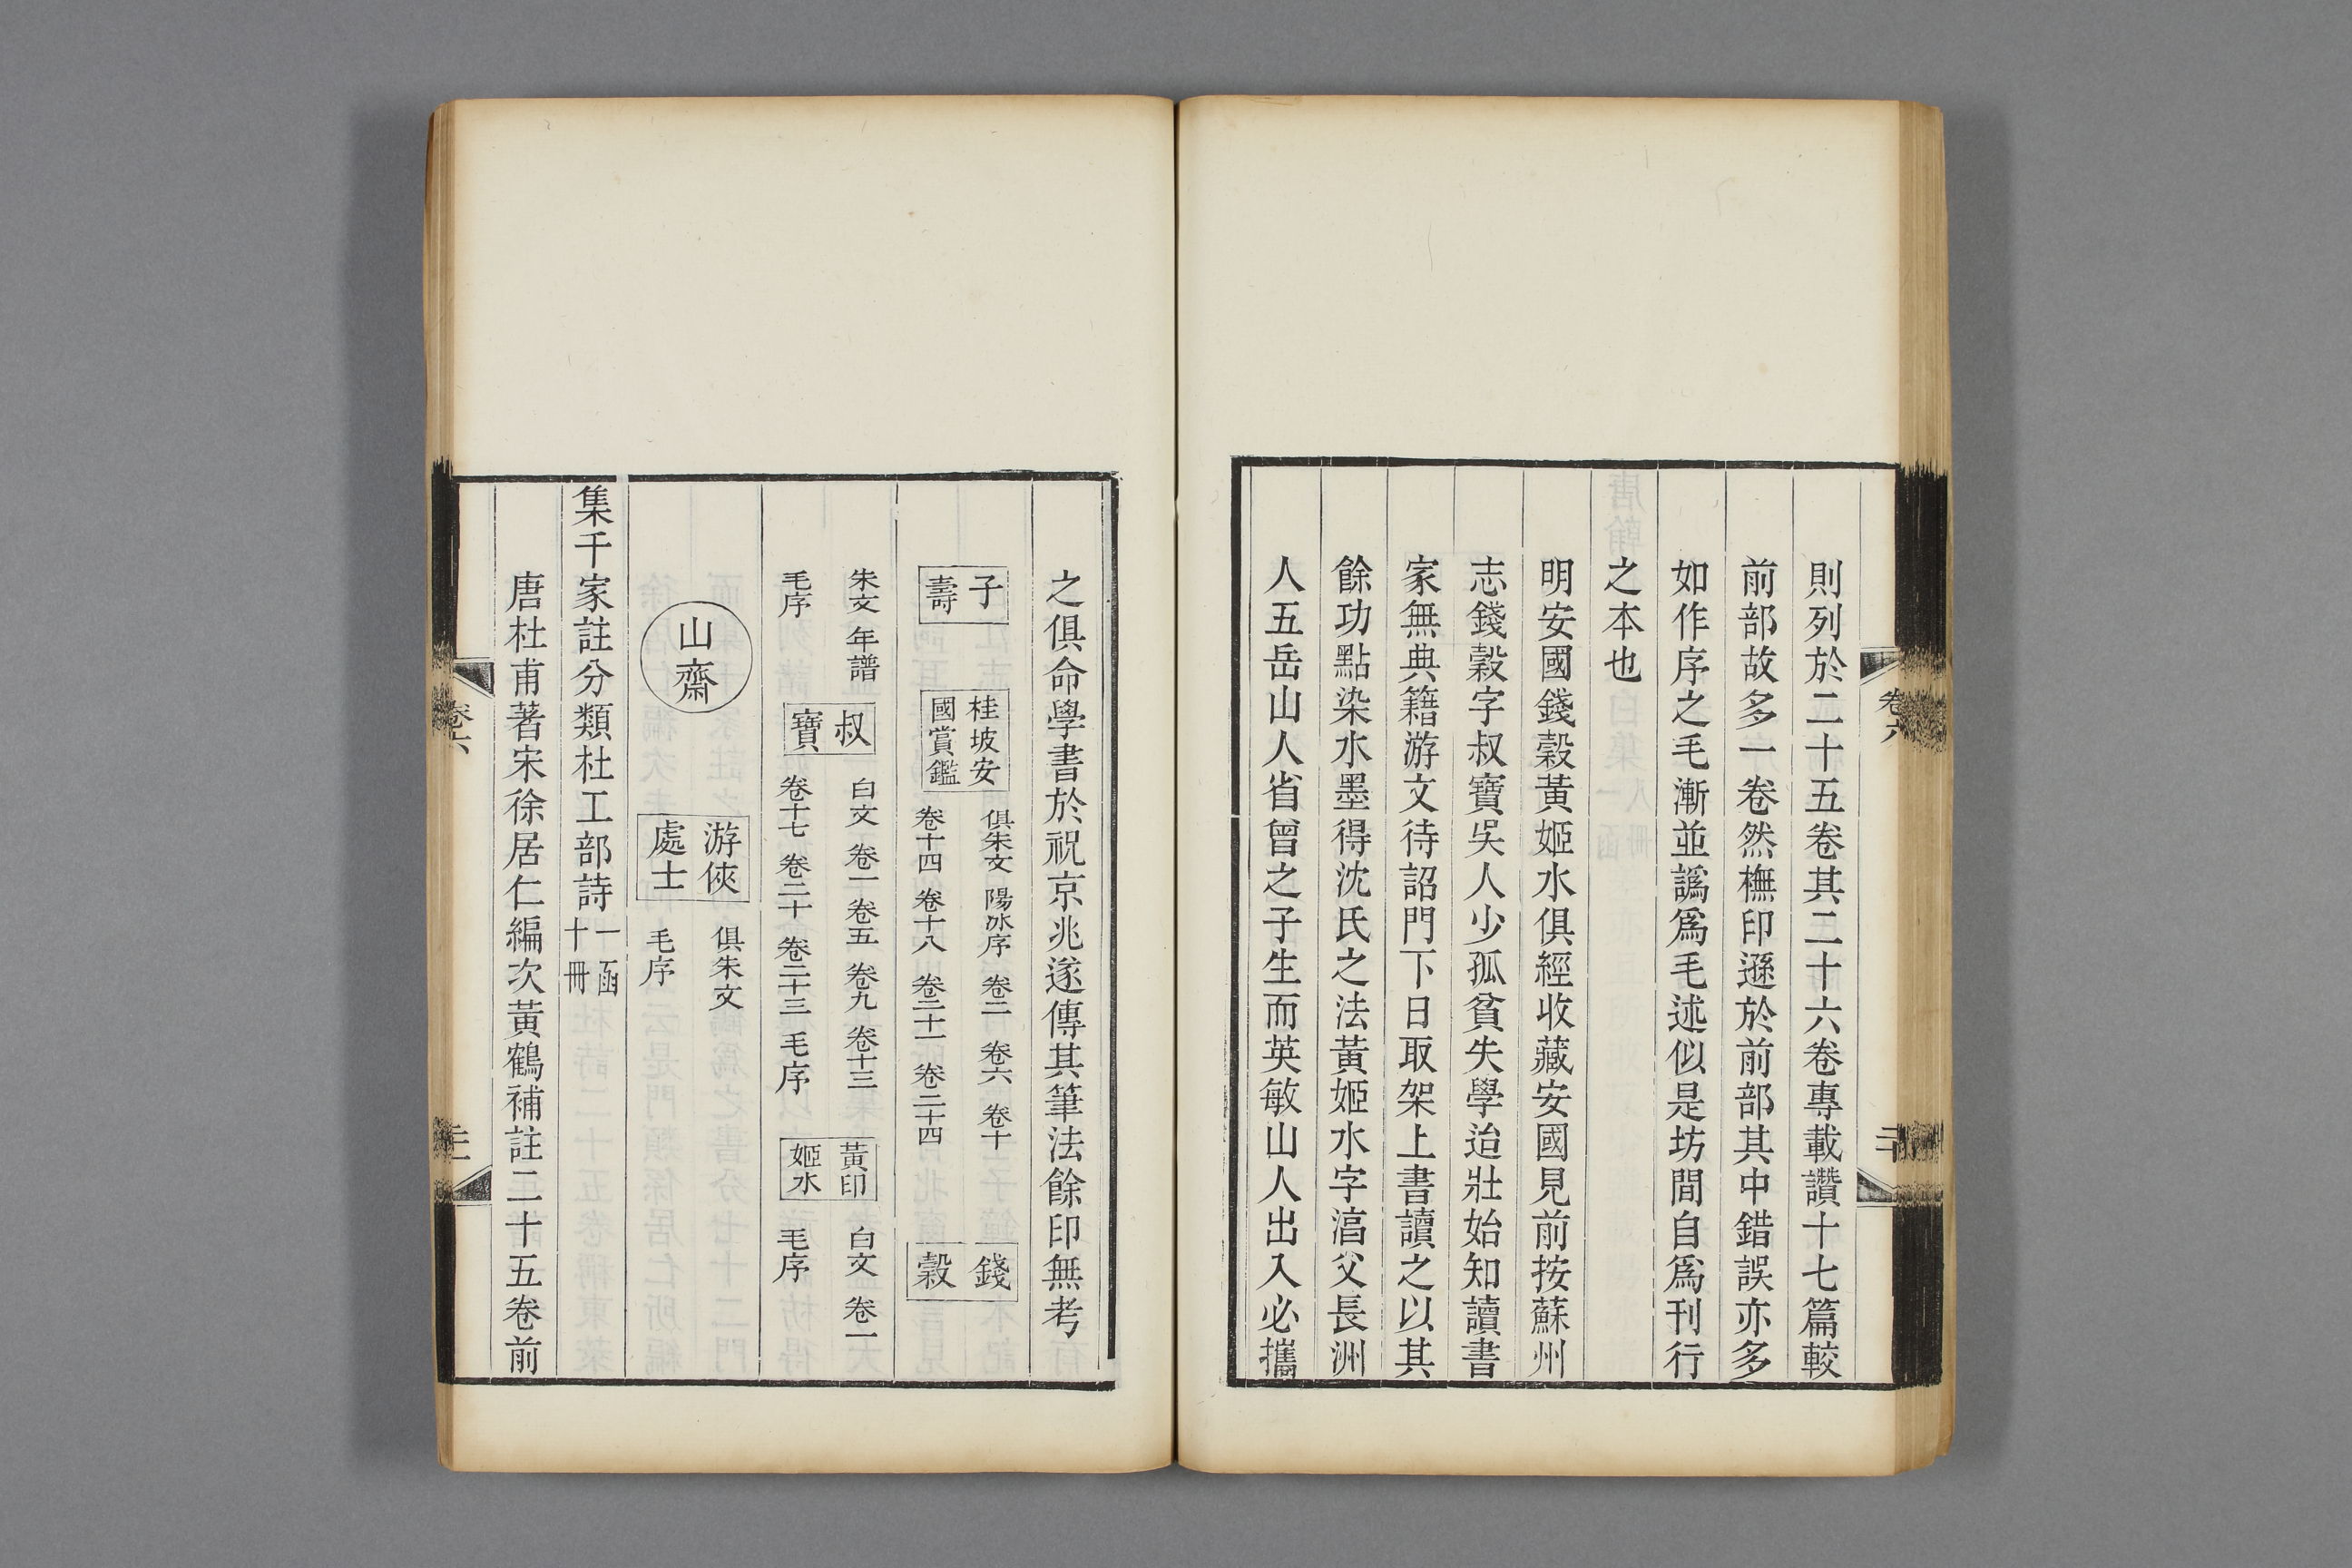 則列於二十五卷其二十六卷專載讚十七篇較
前部故多一卷然橅印遜於前部其中錯誤亦多
如作序之毛漸並譌爲毛述似是坊間自爲刊行
之本也
明安國錢穀黃姬水俱經收藏安國見前按蘇州
志錢穀字叔寶吳人少孤貧失學迨壯始知讀書
家無典籍游文待詔門下日取架上書讀之以其
餘功點染水墨得沈氏之法黃姬水字淳父長洲
人五岳山人省曾之子生而英敏山人出入必攜
卷六
二十
之俱命學書於祝京兆遂傳其筆法餘印無考
子
壽
桂坡安
國賞鑑
俱朱文 陽冰序 卷二 卷六 卷十
卷十四 卷十八 卷二十一 卷二十四
錢
穀
朱文 年譜
毛序
叔
寶
白文 卷一 卷五 卷九 卷十三
卷十七 卷二十 卷二十三 毛序
黃印
姬水
白文 卷一
毛序
山齋
游俠
處士
俱朱文
毛序
集千家註分類杜工部詩
一函
十冊
唐杜甫著宋徐居仁編次黃鶴補註二十五卷前
卷六